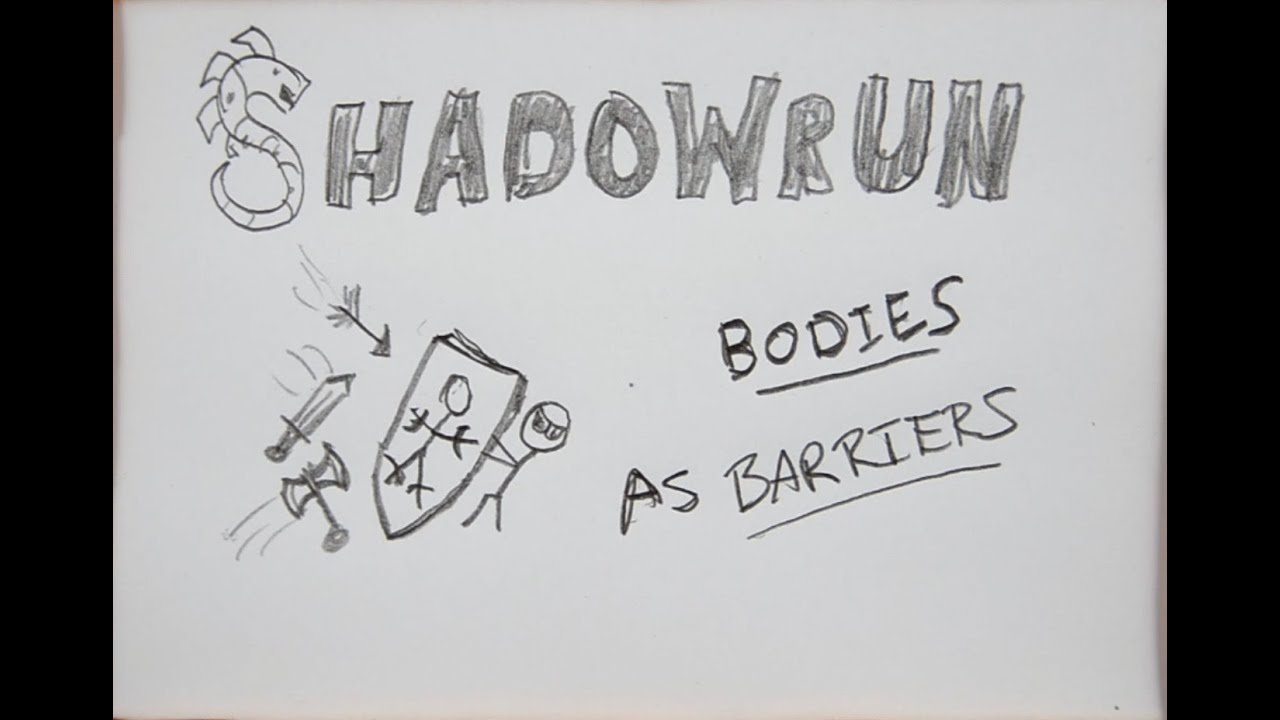 SHADOWRUN
BODIES
AS BARRIERS